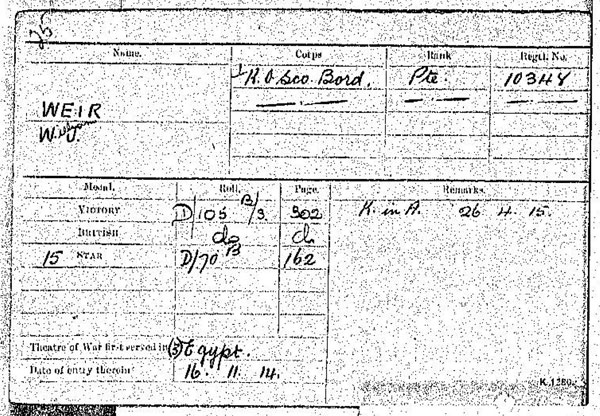 Name. Corps Rank Regtl. No.
K. O. Sco. Bord. Pte. 10348
WEIR
W. J.
Medal. Roll. Page. Remarks.
VICTORY D/105 B/3 302 K. in A. 26 4. 15.
BRITISH do do
15 STAR D/70 B 162
Theatre of War first served in (3) Egypt.
Date of entry therein 16. 11. 14.
K. 1380.